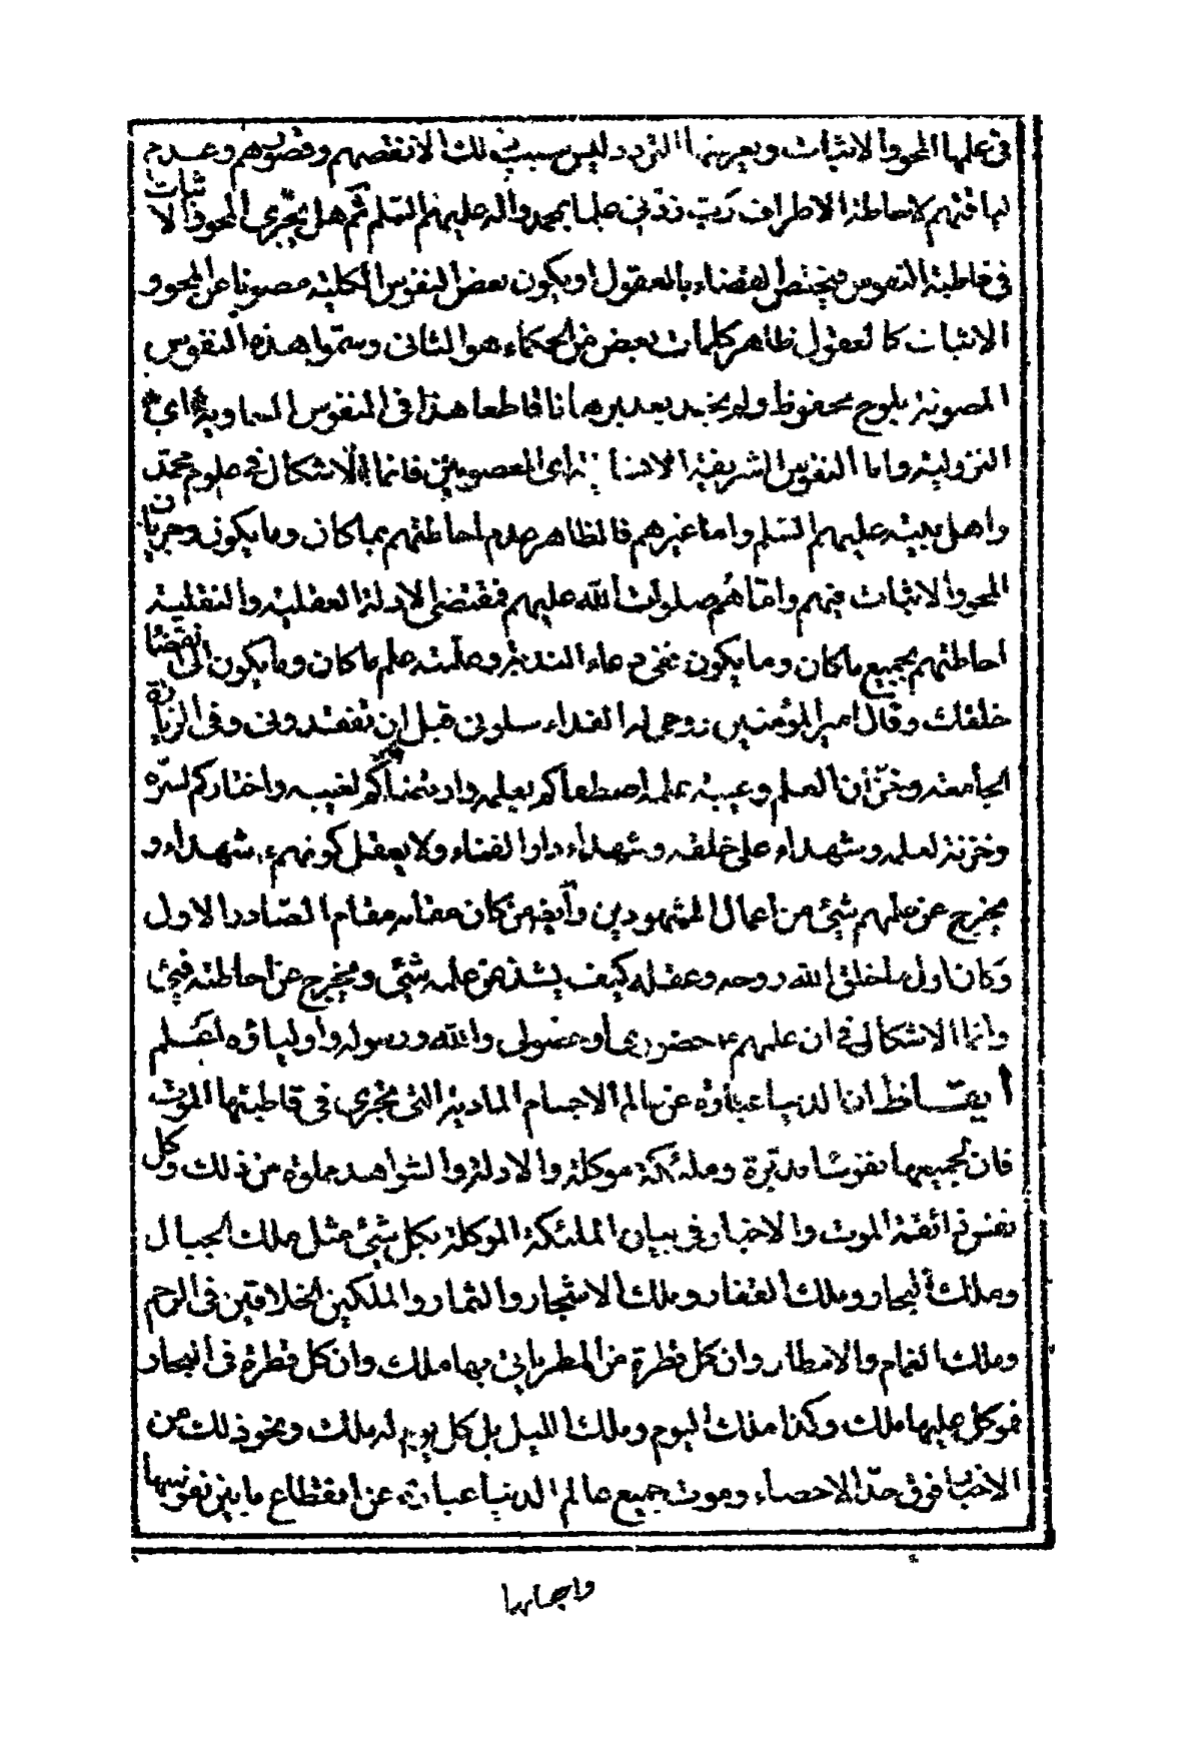 في علمها المحو والاثبات ويعرينها التردد وليس سبب ذلك الا نقصهم وقصورهم وعدم
لياقتهم لاحاطة الاطراف رَبّ زدني علما بمحمد واله عليهم السّلم ثم هل يجرى المحو والاثبات
في قاطبة النفوس ويختص القضاء بالعقول او يكون بعض النفوس الكلية مصونا عن المحو و
الاثبات كالعقول ظاهر كلمات بعض من الحكماء هو الثاني وسمّوا هذه النفوس
المصونة بلوح محفوظ ولم يخبد بعد برهانا قاطعا هذا في النفوس السماوية اى
النزولية واما النفوس الشريفة الانسانية اى المعصومين فانما الاشكال في علوم محمّد
واهل بيته عليهم السّلم واما غيرهم فالظاهر عدم احاطتهم بما كان وما يكون وجريان
المحو والاثبات فيهم وامّا هُم صلوات الله عليهم فمقتضى الادلة العقلية والنقلية
احاطتهم بجميع ما كان وما يكون ففي دعاء الندبة وعلّمته علم ما كان وما يكون الى انقضاء
خلقك وقال امير المؤمنين روحى له الفداء سلونى قبل ان تفقدونى وفي الزيارة
الجامعة وخزّان العلم وعيبة علمه اصطفاكم بعلمه وارتضاكم لغيبه واختاركم لسرّه
وخزنة لعلمه وشهداء على خلقه وشهداء دار الفناء ولا يعقل كونهم شهداء و
يخرج عن علمهم شيئ من اعمال المشهودين وأيضا من كان مقامه مقام الصّادر الاول
وَكان اول ما خلق الله روحه وعقله كيف يشذ من علمه شيئ ويخرج عن احاطته فيئ
وانما الاشكال في ان علمهم ع حضورى أو حصولى والله ورسوله واولياؤه اعلم
ايقاظ ان الدنيا عبارة عن عالم الاجسام المادية التى يجرى في قاطبتها الموت
فان لجميعها نفوسًا مدبّرة وملئكة موكلة والادلة والشواهد مملوة من ذلك وكل
نفس ذائقة الموت والاخبار في بيان الملئكة الموكلة بكل شيئ مثل ملك الجبال
وملك البحار وملك القفار وملك الاشجار والثمار والملكين الخلاقين في الرحم
وملك الغمام والامطار وان كل قطرة من المطر يأتى بها ملك وان كل قطرة في البحار
موكل عليها ملك وكذا ملك اليوم وملك الليل بل كل يوم له ملك ونحو ذلك من
الاخبار فوق حدّ الاحصاء وموت جميع عالم الدنيا عبارة عن انقطاع ما بين نفوسها
واجسامها